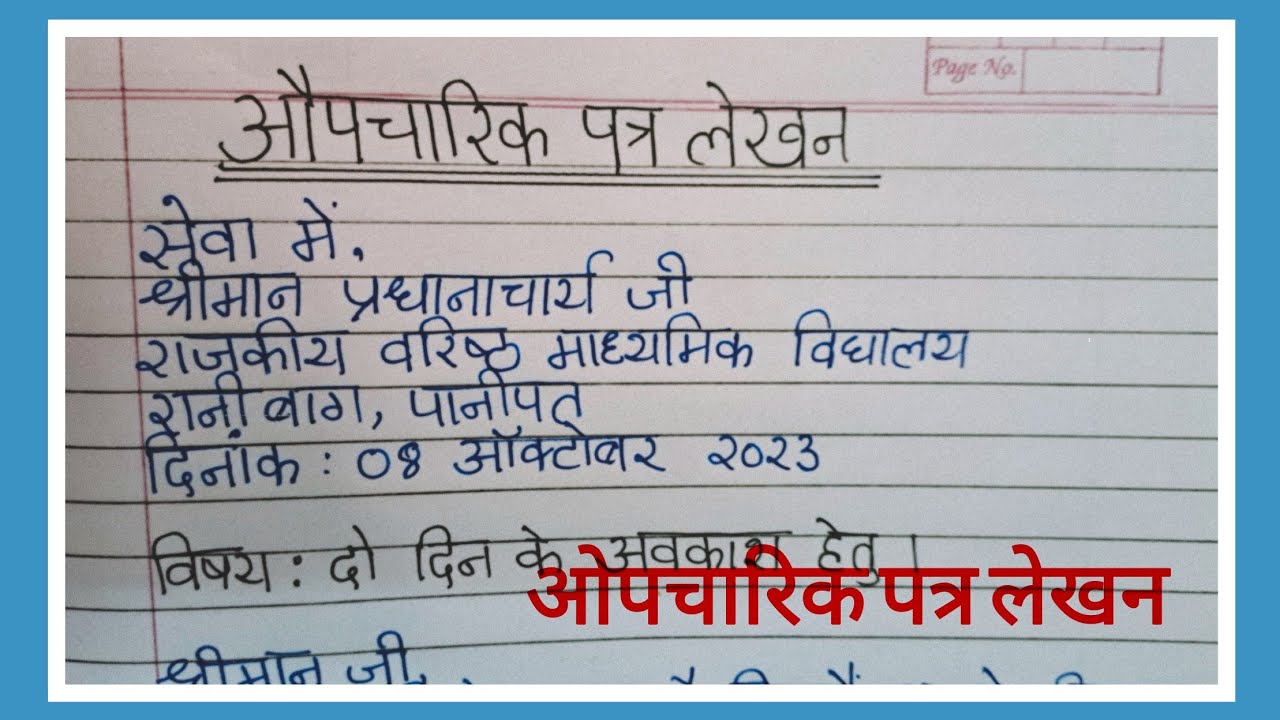 Page No.
औपचारिक पत्र लेखन
सेवा में,
श्रीमान प्रधानाचार्य जी
राजकीय वरिष्ठ माध्यमिक विद्यालय
रानी बाग, पानीपत
दिनांक : 08 ऑक्टोबर २०२३
विषय : दो दिन के अवकाश हेतु ।
ओपचारिक पत्र लेखन
श्रीमान जी,